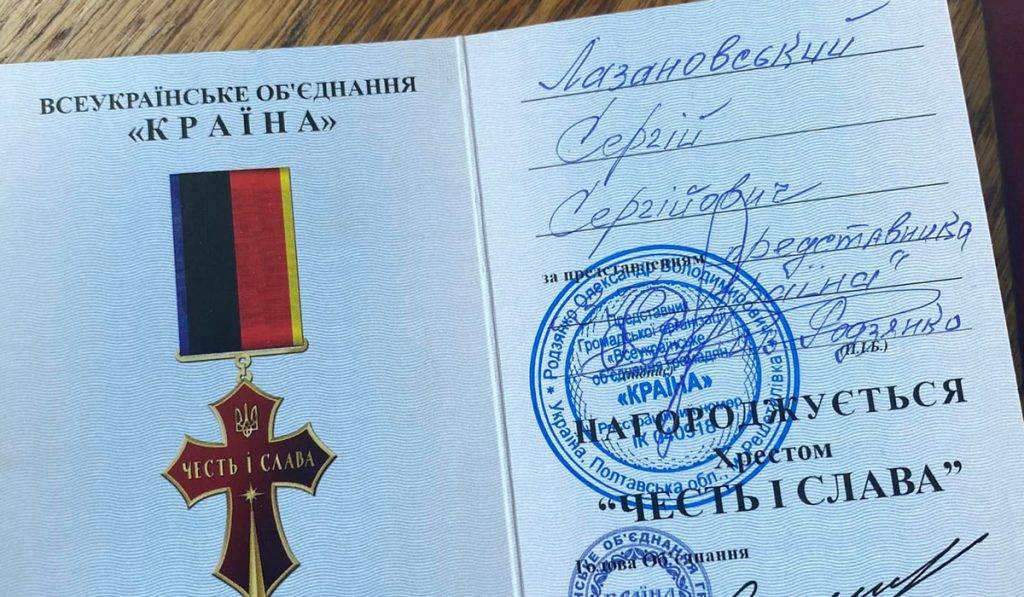 ВСЕУКРАЇНСЬКЕ ОБ'ЄДНАННЯ
«КРАЇНА»
ЧЕСТЬ І СЛАВА
Лазановський
Сергій
Сергійович
за представленням представника
"Країна"
Родзянко
(підпис)
(П.І.Б.)
* Родзянко Олександр Володимирович *
Україна, Полтавська обл., Решетилівка
Представник
Громадської організації
«Всеукраїнське
об'єднання громадян
«КРАЇНА»
Реєстраційний номер
ІК 040318
НАГОРОДЖУЄТЬСЯ
Хрестом
“ЧЕСТЬ І СЛАВА”
Голова Об'єднання